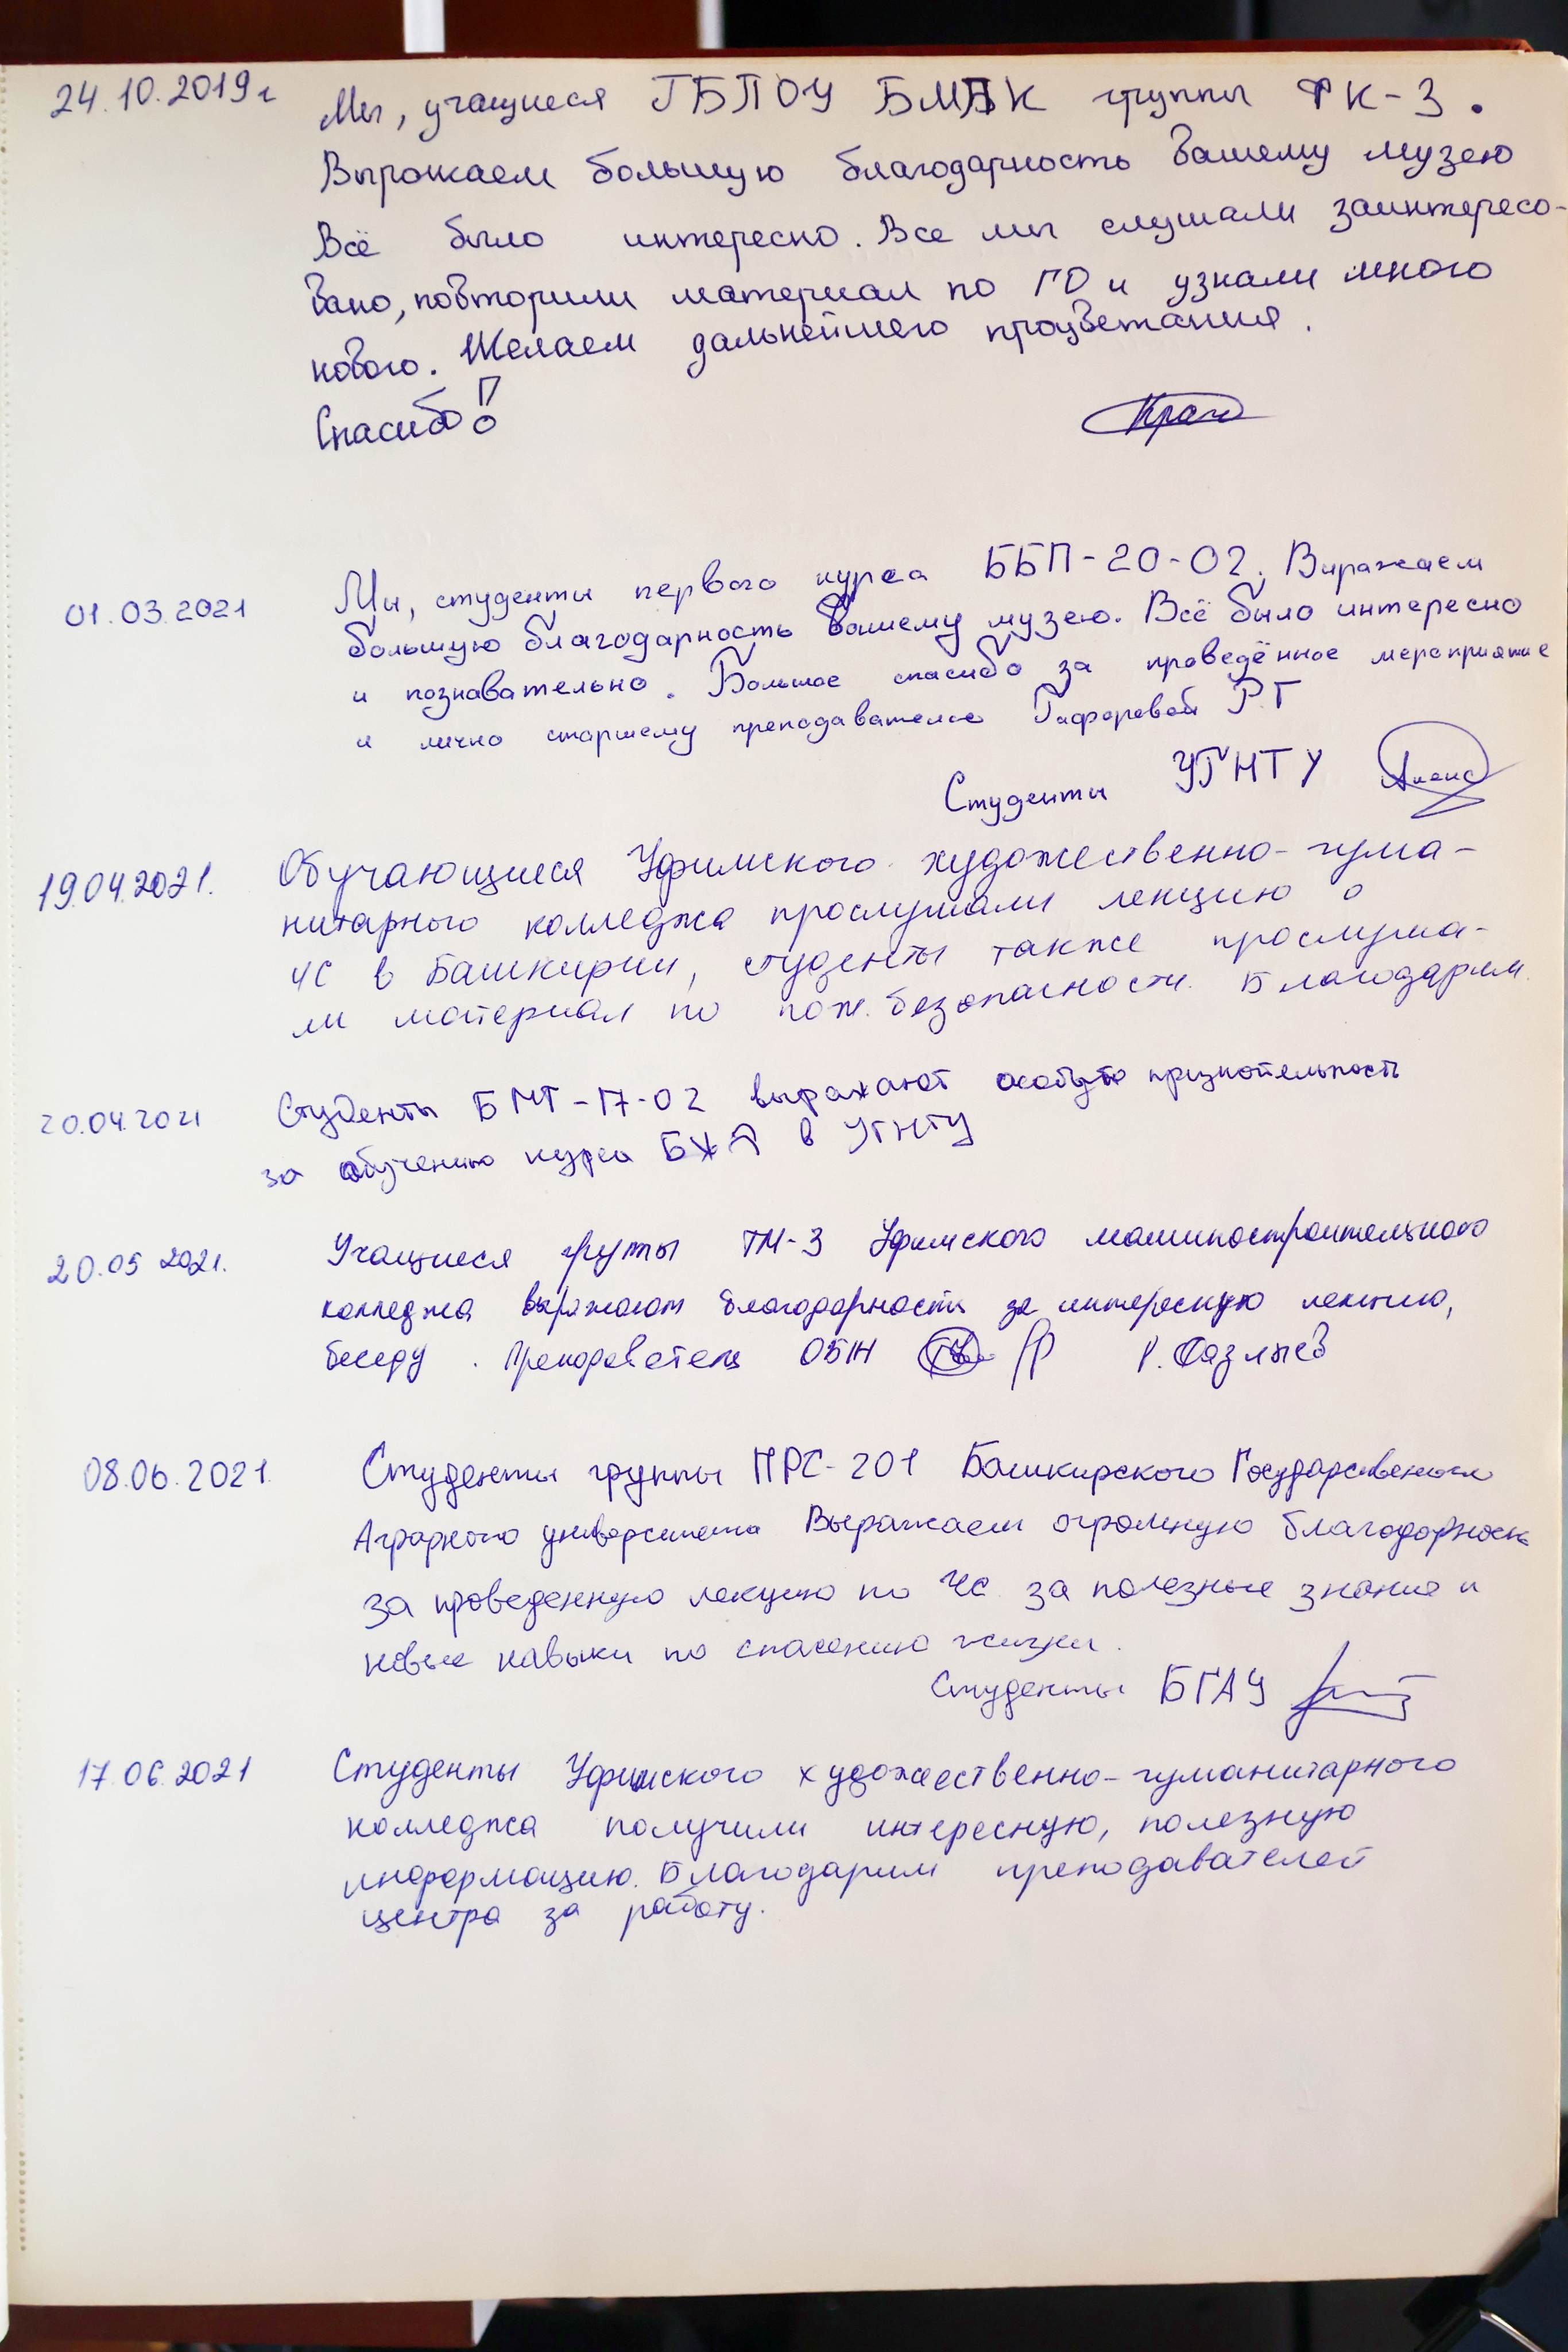 24.10.2019г
Мы, учащиеся ГБПОУ БМПК группы ФК-3.
Выражаем большую благодарность вашему музею
Всё было интересно. Все мы слушали заинтересо-
вано, повторили материал по ГО и узнали много
нового. Желаем дальнейшего процветания.
Спасибо!
01.03.2021
Мы, студенты первого курса ББП-20-02. Выражаем
большую благодарность вашему музею. Всё было интересно
и познавательно. Большое спасибо за проведённое мероприятие
и лично старшему преподавателю Гафоровой Р.Г
Студенты УГНТУ
19.04.2021.
Обучающиеся Уфимского художественно-гума-
нитарного колледжа прослушали лекцию о
ЧС в Башкирии, студенты также прослуша-
ли материал по пож. безопасности. Благодарим.
20.04.2021
Студенты БМТ-17-02 выражают особую признательность
за обучению курса БЖД в УГНТУ
20.05 2021.
Учащиеся группы ТМ-3 Уфимского машиностроительного
колледжа выражают благодарности за интересную лекцию,
беседу. Преподаватель ОБЖ Р. Фазлыев
08.06.2021.
Студенты группы ПРС-201 Башкирского Государственного
Аграрного университета Выражаем огромную благодарность
за проведенную лекцию по ЧС за полезные знания и
новые навыки по спасению жизни.
Студенты БГАУ
17.06.2021
Студенты Уфимского художественно-гуманитарного
колледжа получили интересную, полезную
информацию. Благодарим преподавателей
центра за работу.